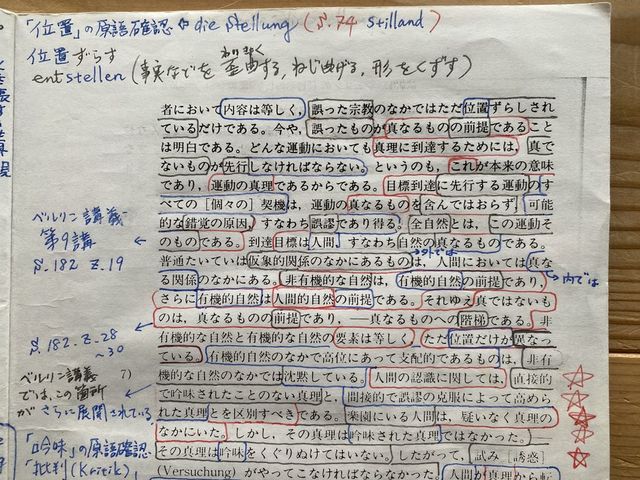 「位置」の原語確認 ⇔ die Stellung (S.74 stilland)
位置ずらす
entstellen (事実などを 歪曲する, ねじまげる, 形をくずす)
わいきょく
者において内容は等しく、誤った宗教のなかではただ位置ずらしされ
ているだけである。今や、誤ったものが真なるものの前提であること
は明白である。どんな運動においても真理に到達するためには、真で
ないものが先行しなければならない。というのも、これが本来の意味
であり、運動の真理であるからである。目標到達に先行する運動のす
べての［個々の］契機は、運動の真なるものを含んではおらず、可能
的な錯覚の原因、すなわち誤謬であり得る。全自然とは、この運動そ
のものである。到達目標は人間、すなわち自然の真なるものである。
普通たいていは仮象的関係のなかにあるものは、人間においては真な
る関係のなかにある。非有機的な自然は、有機的自然の前提であり、
さらに有機的自然は人間的自然の前提である。それゆえ真ではないも
のは、真なるものの前提であり、―真なるものへの階梯である。非
有機的な自然と有機的な自然の要素は等しく、ただ位置だけが異なっ
ている。有機的自然のなかで高位にあって支配的であるものは、非有
機的な自然のなかでは沈黙している。人間の認識に関しては、直接的
で吟味されたことのない真理と、間接的で誤謬の克服によって高めら
れた真理とを区別すべきである。楽園にいる人間は、疑いなく真理の
なかにいた。しかし、その真理は吟味された真理ではなかった。
その真理は吟味をくぐりぬけてはいない。したがって、試み［誘惑］
(Versuchung) がやってこなければならなかった。人間が真理から転
ベルリン講義
第9講
S.182 Z.19
外では
内では
S.182. Z.28
~30
ベルリン講義 7)
では、この箇所
がさらに展開されている
「吟味」の原語確認
「批判(Kritik)」